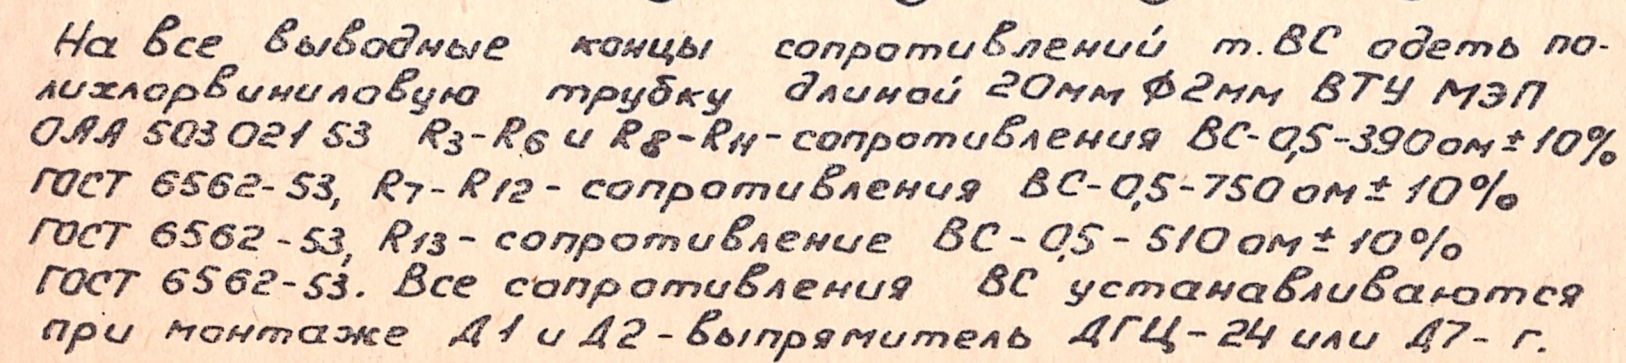 На все выводные концы сопротивлений т. ВС одеть по-
лихлорвиниловую трубку длиной 20мм Ф2мм ВТУ МЭП
ОЯЯ 503 021 53 R3-R6 и R8-R11-сопротивления ВС-0,5-390 ом ± 10%
ГОСТ 6562-53, R7-R12-сопротивления ВС-0,5-750 ом ± 10%
ГОСТ 6562-53, R13-сопротивление ВС-0,5-510 ом ± 10%
ГОСТ 6562-53. Все сопротивления ВС устанавливаются
при монтаже Д1 и Д2-выпрямитель ДГЦ-24 или Д7-г.